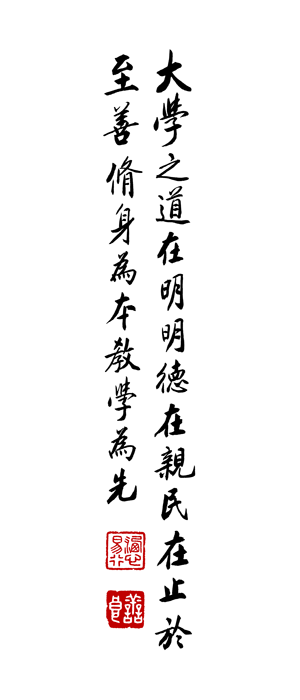 大學之道在明明德在親民在止於
至善脩身為本教學為先